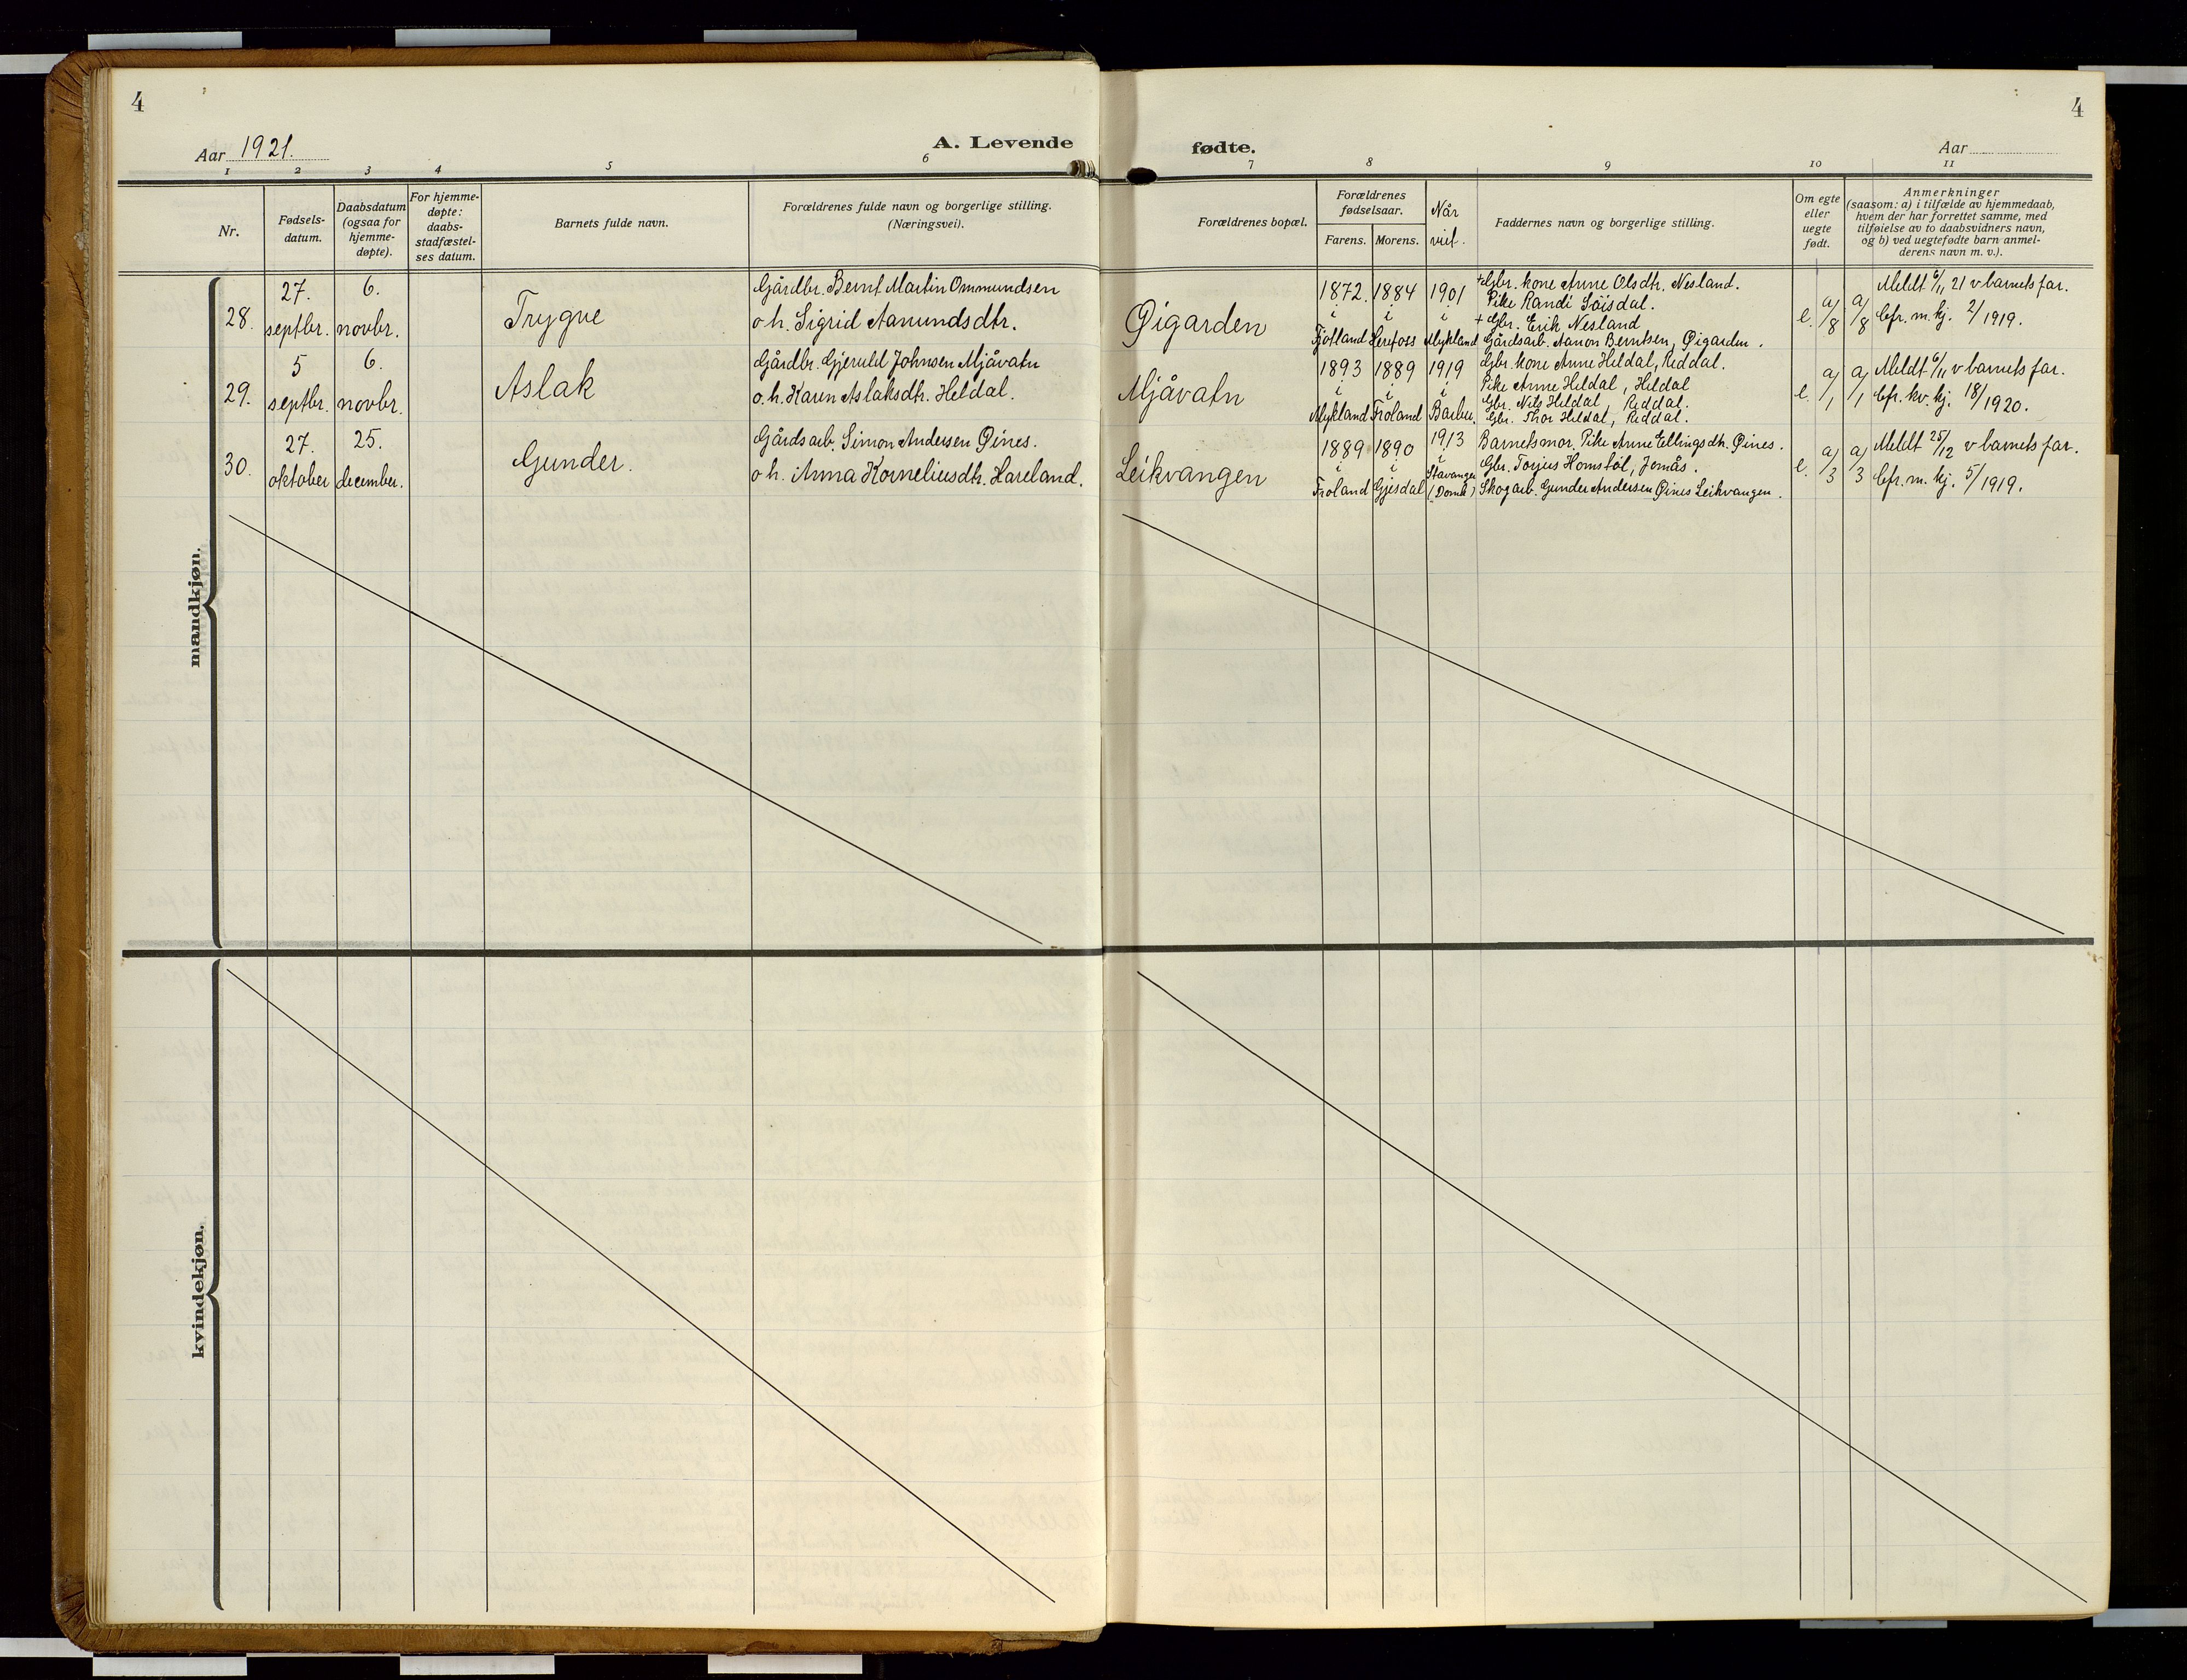 4
Aar 1921.
A. Levende
fødte.
Aar
4
1 2 3 4 5 6 7 8 9 10 11
Nr.
Fødsels-
datum.
Daabsdatum
(ogsaa for
hjemme-
døpte).
For hjemme-
døpte:
daabs-
stadfæstel-
ses datum.
Barnets fulde navn.
Forældrenes fulde navn og borgerlige stilling.
(Næringsvei).
Forældrenes bopæl.
Forældrenes
fødselsaar.
Farens. Morens.
Når
viet.
Faddernes navn og borgerlige stilling.
Om egte
eller
uegte
født.
Anmerkninger
(saasom: a) i tilfælde av hjemmedaab,
hvem der har forrettet samme, med
tilføielse av to daabsvidners navn,
og b) ved uegtefødte barn anmel-
derens navn m. v.).
mandkjøn.
28.
27.
septbr.
6.
novbr.
Trygve
Gårdbr. Bernt Martin Ommundsen
o h. Sigrid Aanundsdtr.
Øigarden
1872. i Fjotland
1884 i Herefoss
1901 i Mykland
+ Gbr. kone Anne Olsdtr. Nesland.
Pike Randi
+ Gbr. Erik Nesland
Gårdsarb. Aanon Berntsen, Øigarden.
e. a/8
a/8
Meldt 6/11 21 v barnets far.
Cfr. m. kj. 2/1919.
29.
5
septbr.
6.
novbr.
Aslak
Gårdbr. Gjeruld Johnsen Mjåvatn
o. h. Karen Aslaksdtr. Heldal.
Mjåvatn
1893 i Mykland
1889 i Froland
1919 i Barbu.
Gbr. kone Anne Heldal, Reddal.
Pike Anne Heldal, Heldal
Gbr. Nils Heldal, Reddal.
Gbr. Thor Heldal, Reddal.
e. a/1
a/1
Meldt 6/11 v barnets far.
Cfr. kv. kj. 18/1920.
30.
27.
oktober
25.
december.
Gunder.
Gårdsarb. Simon Andersen Øines.
o h. Anna Korneliusdtr. Hareland.
Leikvangen
1889 i Froland
1890 i Gjesdal
1913 i Stavanger (Domk)
Barnets mor. Pike Anne Ellingsdtr. Øines.
Gbr. Torjus Homstöl, Jomås.
Skogarb. Gunder Andersen Øines Leikvangen.
e. a/3
a/3
Meldt 25/12 v barnets far.
Cfr. m. kj. 5/1919.
kvindekjøn.